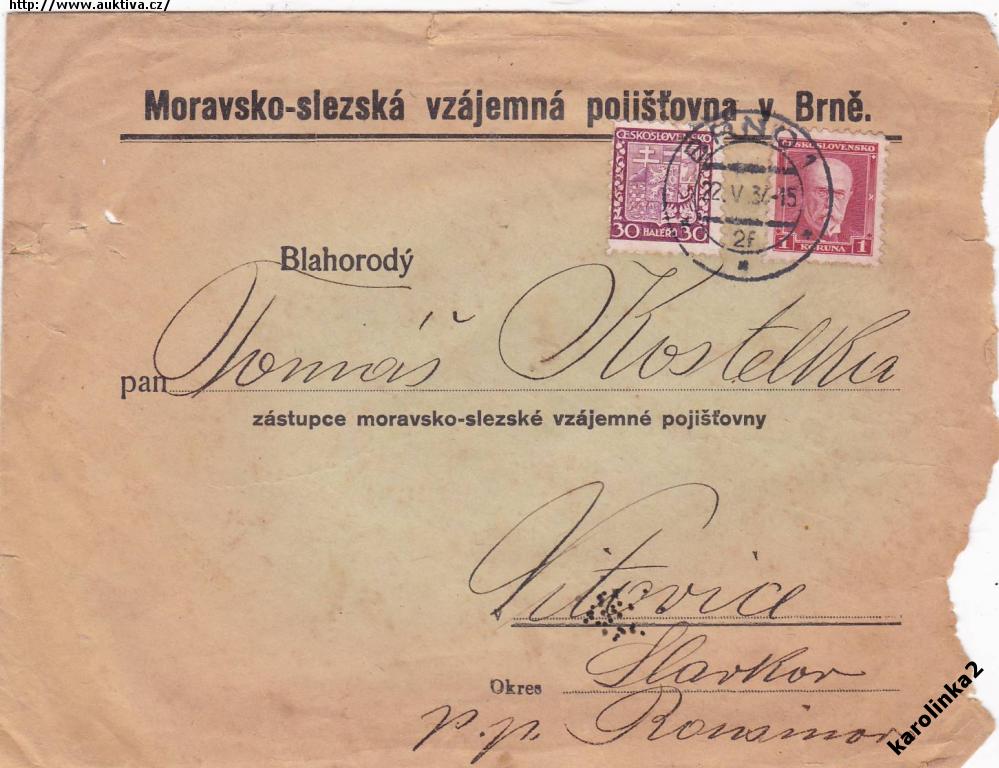 http://www.auktiva.cz/
Moravsko-slezská vzájemná pojišťovna v Brně.
BRNO
22.V.34-15
2f
ČESKOSLOVENSKO
30 HALÉŘŮ 30
ČESKOSLOVENSKO
1 KORUNA 1
Blahorodý
pan Tomáš Kostelka
zástupce moravsko-slezské vzájemné pojišťovny
Vítovice
Okres Slavkov
p.p. Rousínov
karolinka2